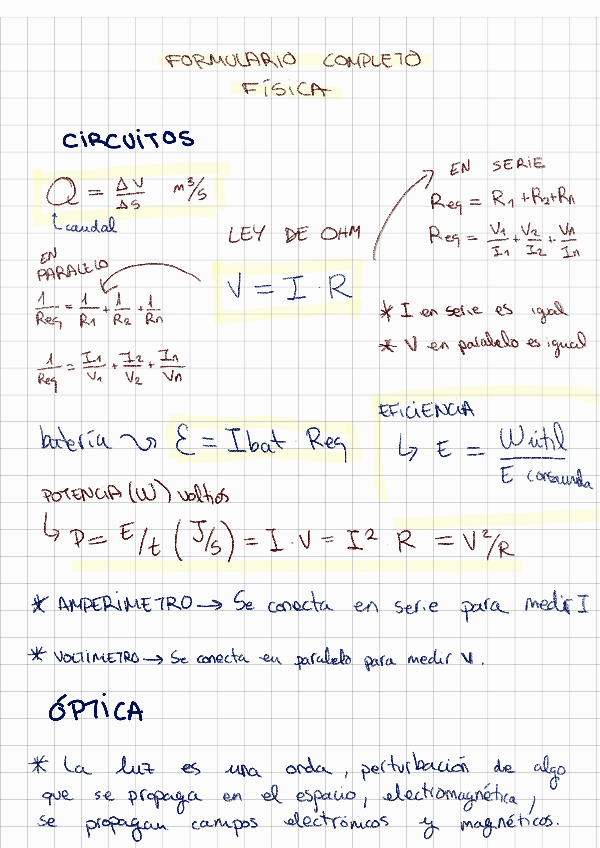 FORMULARIO COMPLETO
FÍSICA
CIRCUITOS
Q = ΔV/ΔS m³/s
caudal
EN SERIE
Req = R1 + R2 + Rn
Req = V1/I1 + V2/I2 + Vn/In
LEY DE OHM
V = I · R
EN
PARALELO
1/Req = 1/R1 + 1/R2 + 1/Rn
1/Req = I1/V1 + I2/V2 + In/Vn
* I en serie es igual
* V en paralelo es igual
EFICIENCIA
↳ E = Wútil/E consumida
batería ↝ Ɛ = Ibat Req
POTENCIA (W) voltios
↳ P = E/t (J/s) = I · V = I² · R = V²/R
* AMPERIMETRO → Se conecta en serie para medir I
* VOLTIMETRO → Se conecta en paralelo para medir V.
ÓPTICA
* La luz es una onda, perturbación de algo
que se propaga en el espacio, electromagnética,
se propagan campos electrónicos y magnéticos.